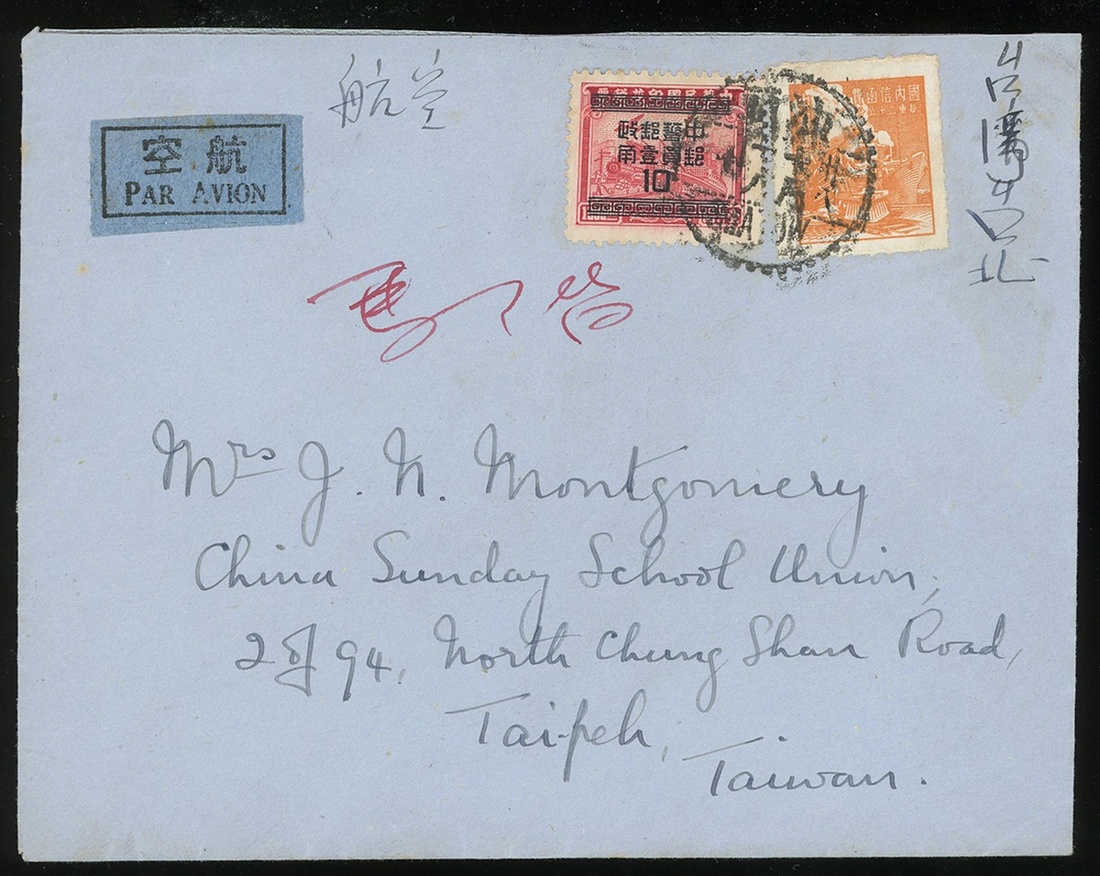 航空
空航
PAR AVION
政郵華中
角壹資郵
10
函信內國
台灣台北
Mrs J. N. Montgomery
China Sunday School Union,
2 of 94, North Chung Shan Road,
Taipeh,
Taiwan.